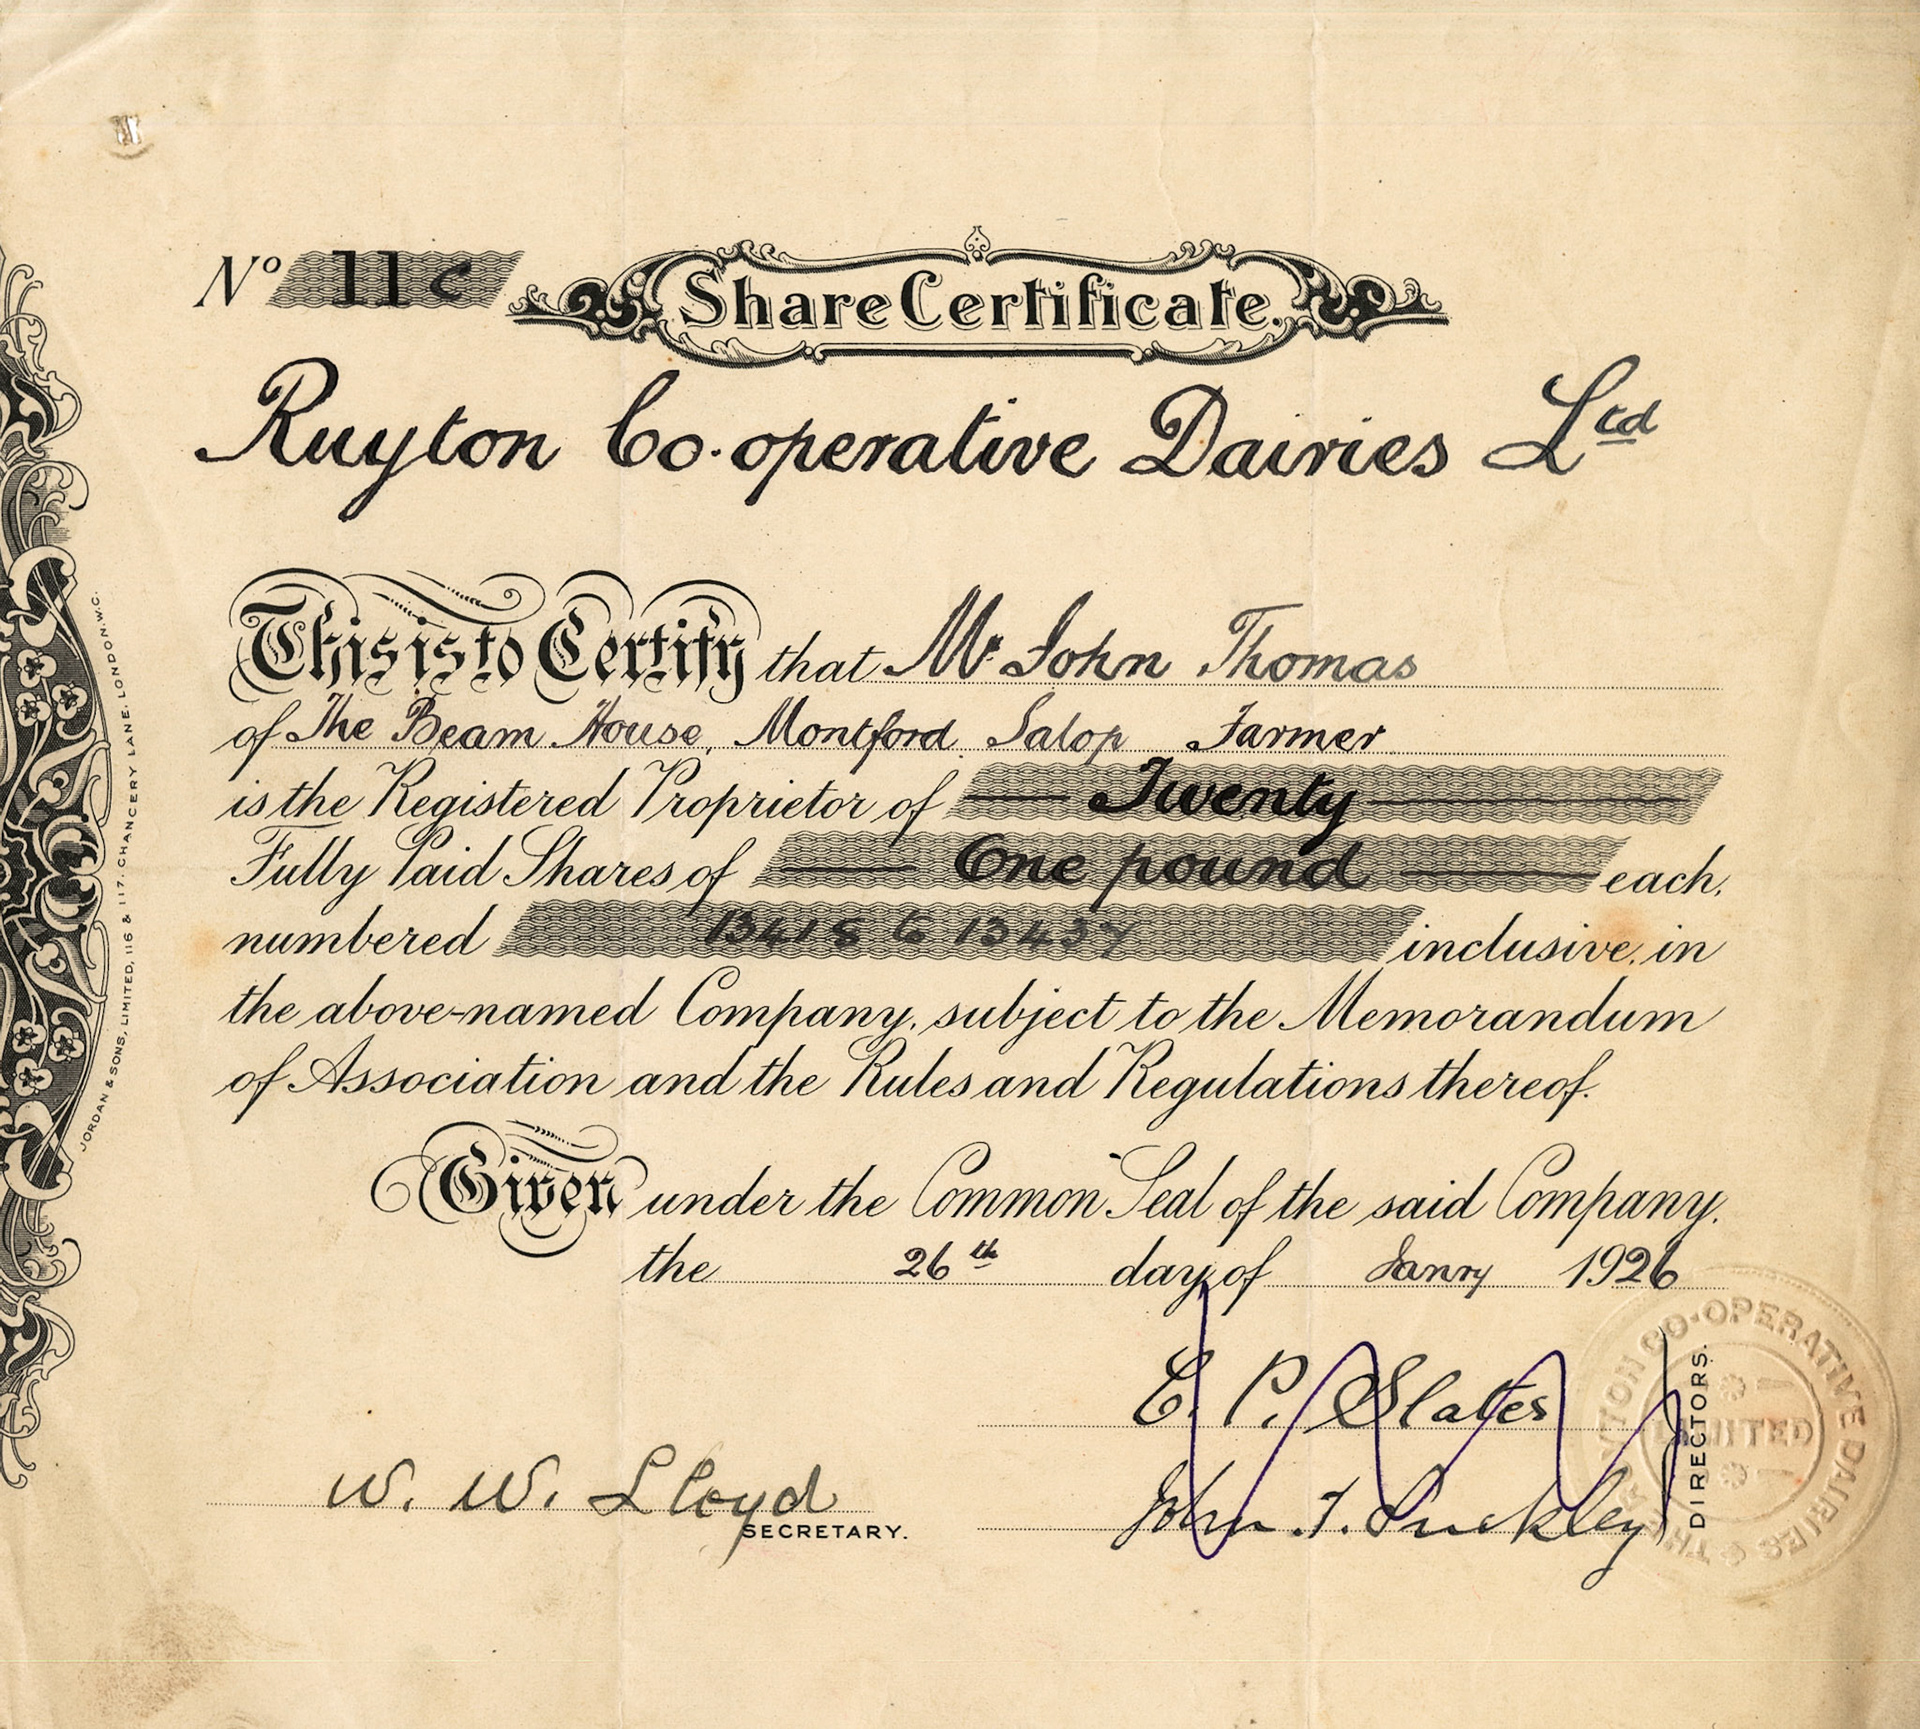 No 11c
Share Certificate.
Ruyton Co-operative Dairies Ltd
This is to Certify that Mr John Thomas
of The Beam House, Montford Salop Farmer
is the Registered Proprietor of Twenty
Fully Paid Shares of One pound each,
numbered 13418 to 13437 inclusive, in
the above-named Company, subject to the Memorandum
of Association and the Rules and Regulations thereof.
Given under the Common Seal of the said Company,
the 26th day of Janry 1926
E. P. Slates
W. W. Lloyd
SECRETARY.
John T.
DIRECTORS.
JORDAN & SONS, LIMITED, 116 & 117, CHANCERY LANE, LONDON. W.C.
THE RUYTON CO-OPERATIVE DAIRIES
LIMITED